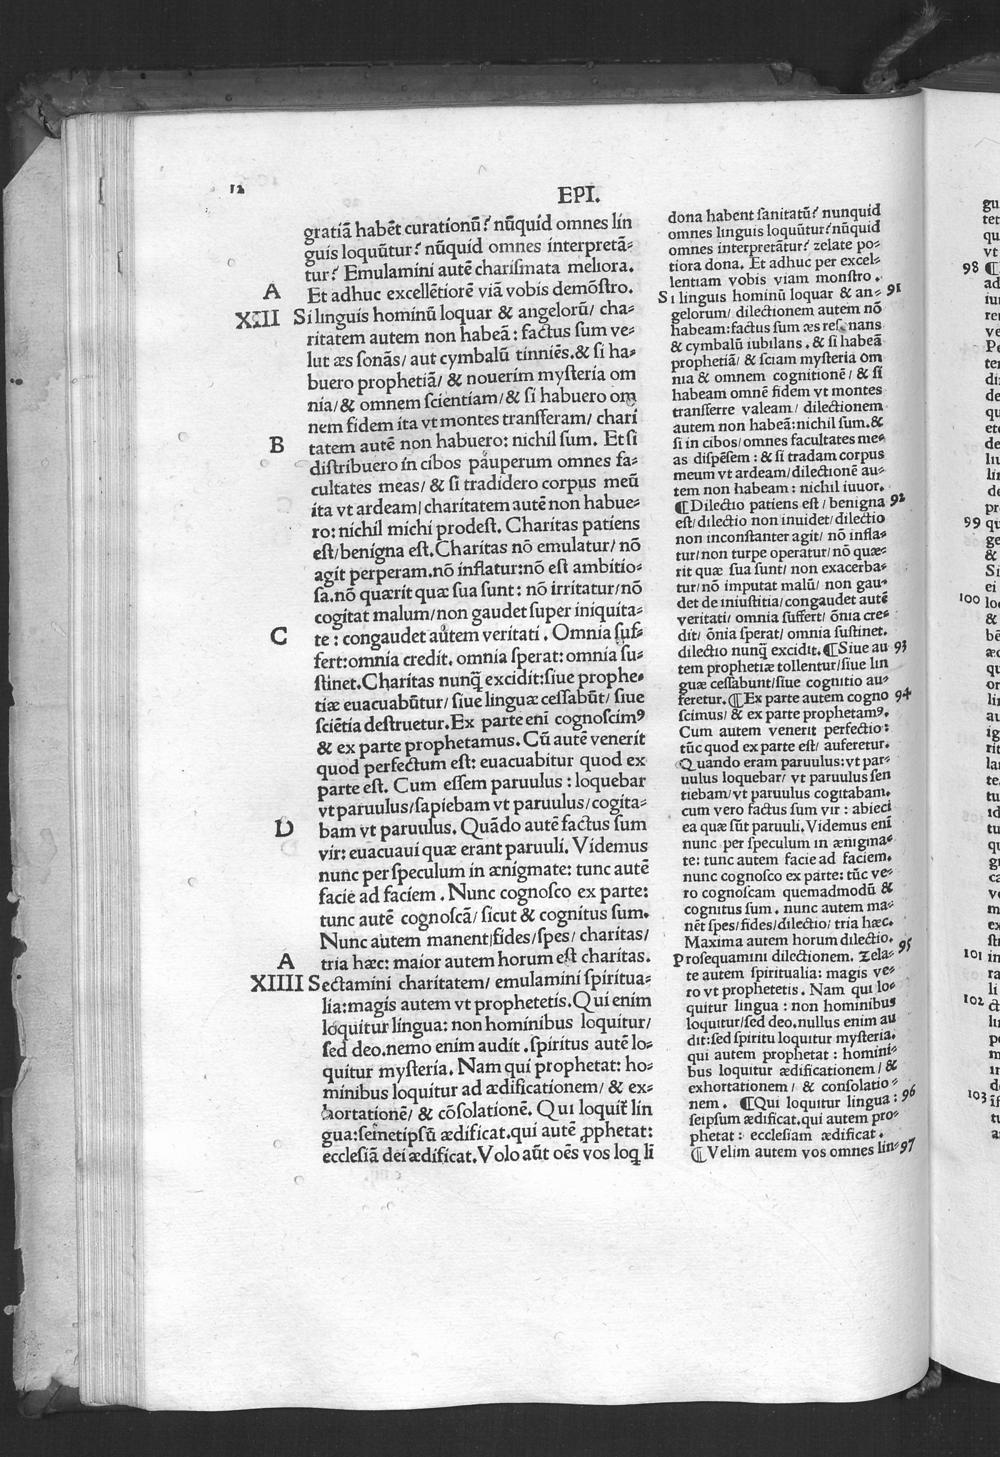 12
EPI.
gratiã habẽt curationũ? nũquid omnes lin
guis loquũtur? nũquid omnes interpretã-
tur? Emulamini autẽ chariſmata meliora.
A Et adhuc excellẽtiorẽ viã vobis demõſtro.
XIII Si linguis hominũ loquar & angelorũ/ cha-
ritatem autem non habeã: factus ſum ve-
lut æs ſonãs/ aut cymbalũ tinniẽs. & ſi ha-
buero prophetiã/ & nouerim myſteria om
nia/ & omnem ſcientiam/ & ſi habuero om
nem fidem ita vt montes tranſferam/ chari
B tatem autẽ non habuero: nichil ſum. Et ſi
diſtribuero in cibos pauperum omnes fa-
cultates meas/ & ſi tradidero corpus meũ
ita vt ardeam/ charitatem autẽ non habue-
ro: nichil michi prodeſt. Charitas patiens
eſt/ benigna eſt. Charitas nõ emulatur/ nõ
agit perperam. nõ inflatur: nõ eſt ambitio-
ſa. nõ quærit quæ ſua ſunt: nõ irritatur/ nõ
cogitat malum/ non gaudet ſuper iniquita-
C te: congaudet autem veritati. Omnia ſuf-
fert: omnia credit. omnia ſperat: omnia ſu-
ſtinet. Charitas nunq̃ excidit: ſiue prophe-
tiæ euacuabũtur/ ſiue linguæ ceſſabũt/ ſiue
ſciẽtia deſtruetur. Ex parte enĩ cognoſcimꝰ
& ex parte prophetamus. Cũ autẽ venerit
quod perfectum eſt: euacuabitur quod ex
parte eſt. Cum eſſem paruulus: loquebar
vt paruulus/ ſapiebam vt paruulus/ cogita-
D bam vt paruulus. Quãdo autẽ factus ſum
vir: euacuaui quæ erant paruuli. Videmus
nunc per ſpeculum in ænigmate: tunc autẽ
facie ad faciem. Nunc cognoſco ex parte:
tunc autẽ cognoſcã/ ſicut & cognitus ſum.
Nunc autem manent/ fides/ ſpes/ charitas/
A tria hæc: maior autem horum eſt charitas.
XIIII Sectamini charitatem/ emulamini ſpiritua-
lia: magis autem vt prophetetis. Qui enim
loquitur lingua: non hominibus loquitur/
ſed deo. nemo enim audit. ſpiritus autẽ lo-
quitur myſteria. Nam qui prophetat: ho-
minibus loquitur ad ædificationem/ & ex-
hortationẽ/ & cõſolationẽ. Qui loquit̃ lin
gua: ſemetipſũ ædificat. qui autẽ ꝓphetat:
eccleſiã dei ædificat. Volo aũt oẽs vos loq̃ li
dona habent ſanitatũ? nunquid
omnes linguis loquũtur? nũquid
omnes interpretãtur? zelate po-
tiora dona. Et adhuc per excel-
lentiam vobis viam monſtro.
Si linguis hominũ loquar & an- 91
gelorum/ dilectionem autem nõ
habeam: factus ſum æs reſonans
& cymbalũ iubilans. & ſi habeã
prophetiã/ & ſciam myſteria om
nia & omnem cognitionẽ/ & ſi
habeam omnẽ fidem vt montes
tranſferre valeam/ dilectionem
autem non habeã: nichil ſum. &
ſi in cibos/ omnes facultates me-
as diſpẽſem: & ſi tradam corpus
meum vt ardeam/ dilectionẽ au-
tem non habeam: nichil iuuor.
¶ Dilectio patiens eſt/ benigna 92
eſt/ dilectio non inuidet/ dilectio
non inconſtanter agit/ nõ infla-
tur/ non turpe operatur/ nõ quæ-
rit quæ ſua ſunt/ non exacerba-
tur/ nõ imputat malũ/ non gau-
det de iniuſtitia/ congaudet autẽ
veritati/ omnia ſuffert/ õnia cre-
dit/ õnia ſperat/ omnia ſuſtinet.
dilectio nunq̃ excidit. ¶ Siue au 93
tem prophetiæ tollentur/ ſiue lin
guæ ceſſabunt/ ſiue cognitio au-
feretur. ¶ Ex parte autem cogno 94
ſcimus/ & ex parte prophetamꝰ.
Cum autem venerit perfectio:
tũc quod ex parte eſt/ auferetur.
Quando eram paruulus: vt par-
uulus loquebar/ vt paruulus ſen
tiebam/ vt paruulus cogitabam.
cum vero factus ſum vir: abieci
ea quæ ſũt paruuli. Videmus enĩ
nunc per ſpeculum in ænigma-
te: tunc autem facie ad faciem.
nunc cognoſco ex parte: tũc ve-
ro cognoſcam quemadmodũ &
cognitus ſum. nunc autem ma-
nẽt ſpes/ fides/ dilectio/ tria hæc.
Maxima autem horum dilectio.
Proſequamini dilectionem. zela- 95
te autem ſpiritualia: magis ve-
ro vt prophetetis. Nam qui lo-
quitur lingua: non hominibus
loquitur/ ſed deo. nullus enim au
dit: ſed ſpiritu loquitur myſteria.
qui autem prophetat: homini-
bus loquitur ædificationem/ &
exhortationem/ & conſolatio-
nem. ¶ Qui loquitur lingua: 96
ſeipſum ædificat. qui autem pro-
phetat: eccleſiam ædificat.
¶ Velim autem vos omnes lin- 97
98
99
100
101
102
103